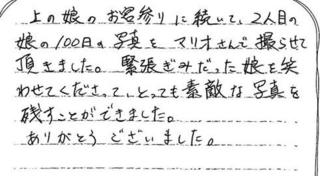 上の娘のお宮参りに続いて、2人目の
娘の100日の写真をマリオさんで撮らせて
頂きました。緊張ぎみだった娘を笑
わせてくださって、とっても素敵な写真を
残すことができました。
ありがとうございました。